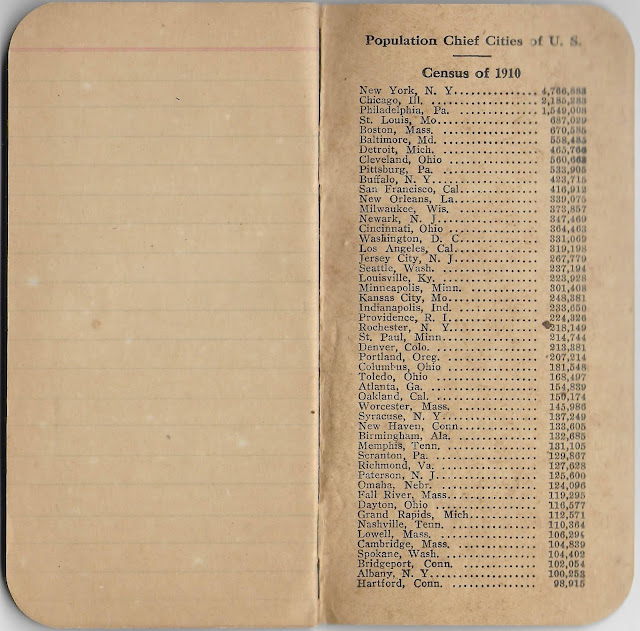 Population Chief Cities of U. S.
Census of 1910
New York, N. Y. 4,766,883
Chicago, Ill. 2,185,283
Philadelphia, Pa. 1,549,008
St. Louis, Mo. 687,029
Boston, Mass. 670,585
Baltimore, Md. 558,485
Detroit, Mich. 465,766
Cleveland, Ohio 560,663
Pittsburg, Pa. 533,905
Buffalo, N. Y. 423,715
San Francisco, Cal. 416,912
New Orleans, La. 339,075
Milwaukee, Wis. 373,857
Newark, N. J. 347,469
Cincinnati, Ohio 364,463
Washington, D. C. 331,069
Los Angeles, Cal. 319,198
Jersey City, N. J. 267,779
Seattle, Wash. 237,194
Louisville, Ky. 223,928
Minneapolis, Minn. 301,408
Kansas City, Mo. 248,381
Indianapolis, Ind. 233,650
Providence, R. I. 224,326
Rochester, N. Y. 218,149
St. Paul, Minn. 214,744
Denver, Colo. 213,381
Portland, Oreg. 207,214
Columbus, Ohio 181,548
Toledo, Ohio 168,497
Atlanta, Ga. 154,839
Oakland, Cal. 150,174
Worcester, Mass. 145,986
Syracuse, N. Y. 137,249
New Haven, Conn. 133,605
Birmingham, Ala. 132,685
Memphis, Tenn. 131,105
Scranton, Pa. 129,867
Richmond, Va. 127,628
Paterson, N. J. 125,600
Omaha, Nebr. 124,096
Fall River, Mass. 119,295
Dayton, Ohio 116,577
Grand Rapids, Mich. 112,571
Nashville, Tenn. 110,364
Lowell, Mass. 106,294
Cambridge, Mass. 104,839
Spokane, Wash. 104,402
Bridgeport, Conn. 102,054
Albany, N. Y. 100,253
Hartford, Conn. 98,915